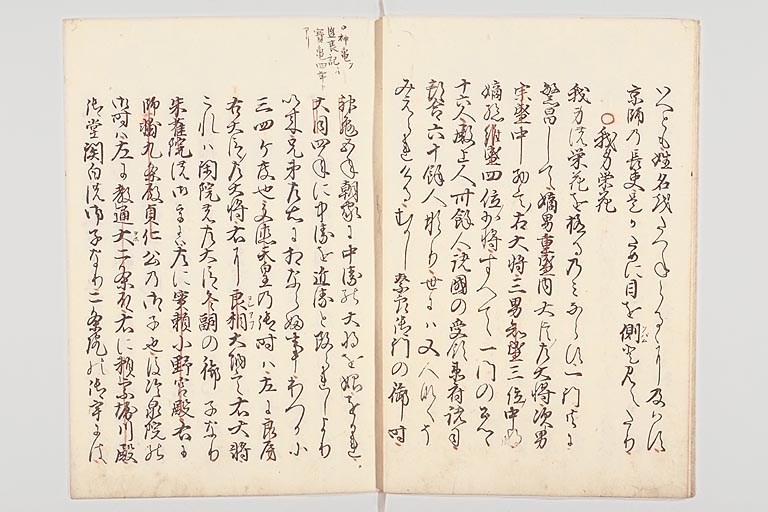 いへとも姓名を尋らるゝに及はす
京師乃長吏是かために目を側と見えたり
○我身栄花
我身の栄花を極る乃みならす一門共に
繁昌して嫡男重盛内大臣左大将次男
宗盛中納言右大将三男知盛三位中将
嫡孫維盛四位少将すへて一門の公卿
十六人殿上人卅餘人諸國の受領衛府諸司
都合六十餘人なり世にハ又人なくそ
みえられける むかし奈良御門の御時
神亀ノ
盛衰記ハ
寳亀四年ト
アリ
神亀五年朝家に中衛の大将を始をかれ
大同四年に中衛を近衛と改られしより
以来兄弟左右に相ならふ事わつか小
三四ケ度也文徳天皇乃御時ハ左に良房
右大臣左大将右に良相大納言右大将
これハ閑院の左大臣冬嗣の御子なり
朱雀院の御宇には左に実頼小野宮殿右に
師輔九条殿貞仁公乃御子也後冷泉院の
御時ハ左に教通大二条殿右に頼宗堀川殿
御堂関白の御子なり二条院の御宇には